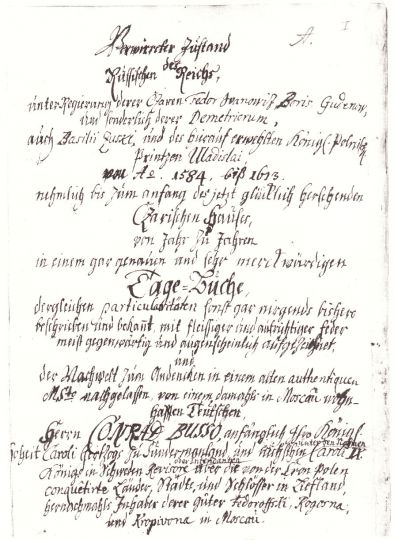 A. 1
Verwirrter Zustand
des
Russischen Reichs,
unter Regierung derer Czaren Fedor Iwanowiz Boris Gudenow,
und sonderlich derer Demetriorum,
auch Basilii Zuski, und des hierauf erwehlten Königl. Polnischen
Printzen Uladislai,
vom Ao. 1584. biß 1613.
nehmlich bis zum anfang des jetzt glücklich herschenden
Czarischen Hauses,
von Jahr zu Jahren
in einem gar genauen und sehr merckwürdigen
Tage-Buche,
dergleichen particularitäten sonst gar nirgends bishero
beschrieben und bekant, mit fleissiger und aufrichtiger feder
meist gegenwärtig und augenscheinlich aufgezeichnet,
und
der Nachwelt zum Andencken in einem alten authentiquen
Msto nachgelassen, von einem damahls in Moscau wohn-
haften Teutschen,
Herrn CONRAD BUSSO, anfänglich Ihro Königl.
Carols Hertzogs zu Sudermanland, und nachgehends Caroli IX
Königs in Schweden Revisore über die von der Cron Polen
conquetirte Länder, Städte, und Schlösser in Liefland,
hernachmahls Inhaber derer Güter Fedoroffski, Rogosna,
und Kropivona in Moscau.